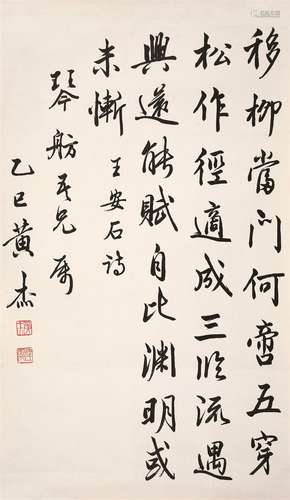 移柳當門何啻五穿
松作徑適成三臨流遇
興還能賦自比淵明或
未慚
王安石詩
琴舫吾兄属
乙巳黃杰